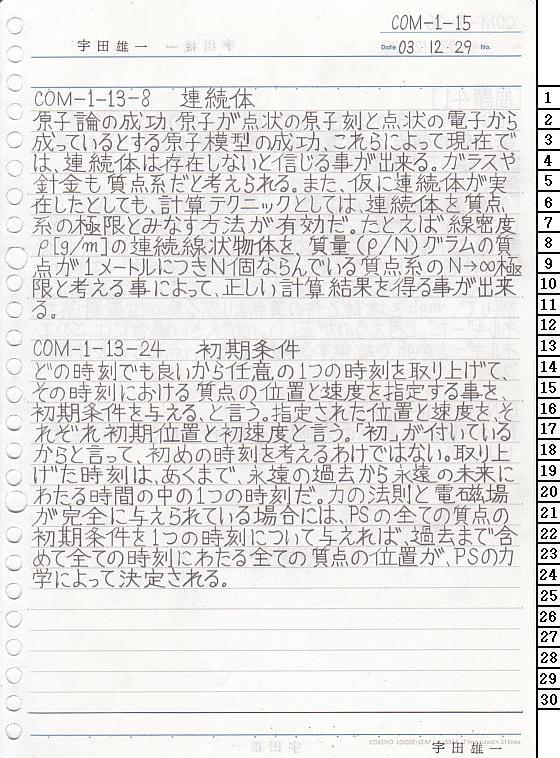 COM-1-15
宇田雄一
Date 03・12・29 No.
COM-1-13-8 連続体
原子論の成功、原子が点状の原子刻と点状の電子から
成っているとする原子模型の成功、これらによって現在で
は、連続体は存在しないと信じる事が出来る。ガラスや
針金も質点系だと考えられる。また、仮に連続体が実
在したとしても、計算テクニックとしては、連続体を質点
系の極限とみなす方法が有効だ。たとえば線密度
ρ[g/m]の連続線状物体を、質量(ρ/N)グラムの質
点が1メートルにつきN個ならんでいる質点系のN→∞極
限と考える事によって、正しい計算結果を得る事が出来
る。
COM-1-13-24 初期条件
どの時刻でも良いから任意の1つの時刻を取り上げて、
その時刻における質点の位置と速度を指定する事を、
初期条件を与える、と言う。指定された位置と速度を、そ
れぞれ初期位置と初速度と言う。「初」が付いている
からと言って、初めの時刻を考えるわけではない。取り上
げた時刻は、あくまで、永遠の過去から永遠の未来に
わたる時間の中の1つの時刻だ。力の法則と電磁場
が完全に与えられている場合には、PSの全ての質点の
初期条件を1つの時刻について与えれば、過去まで含
めて全ての時刻にわたる全ての質点の位置が、PSの力
学によって決定される。
宇田雄一
1
2
3
4
5
6
7
8
9
10
11
12
13
14
15
16
17
18
19
20
21
22
23
24
25
26
27
28
29
30